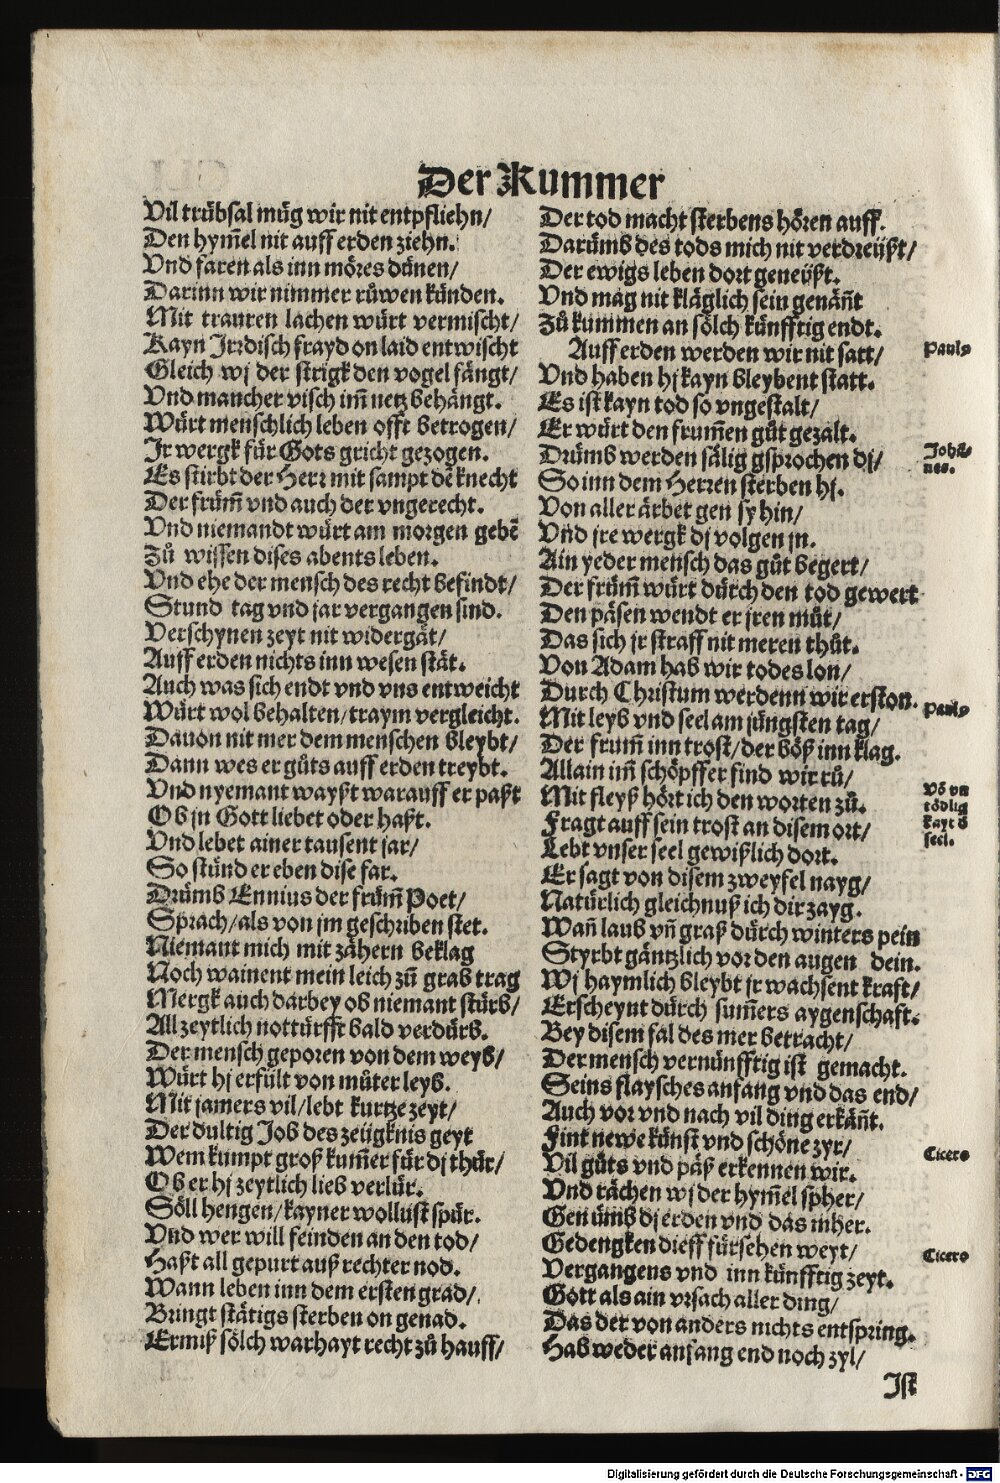 Der Kummer
Vil trübsal müg wir nit entpfliehn/
Den hym̄el nit auff erden ziehn.
Vnd faren als inn möres dünen/
Darinn wir nimmer růwen künden.
Mit trauren lachen würt vermischt/
Kayn Jrrdisch frayd on laid entwischt
Gleich wj der strigk den vogel fängt/
Vnd mancher visch im̄ netz behängt.
Würt menschlich leben offt betrogen/
Jr wergk für Gots gricht gezogen.
Es stirbt der Herr mit sampt dē knecht
Der frům̄ vnd auch der vngerecht.
Vnd niemandt würt am morgen gebē
Zů wissen dises abents leben.
Vnd ehe der mensch des recht befindt/
Stund tag vnd jar vergangen sind.
Verschynen zeyt nit widergät/
Auff erden nichts inn wesen stät.
Auch was sich endt vnd vns entweicht
Würt wol behalten/traym vergleicht.
Dauon nit mer dem menschen bleybt/
Dann wes er gůts auff erden treybt.
Vnd nyemant wayßt warauff er paßt
Ob jn Gott liebet oder haßt.
Vnd lebet ainer tausent jar/
So stünd er eben dise far.
Drümb Ennius der früm̄ Poet/
Sprach/als von jm geschriben stet.
Niemant mich mit zähern beklag
Noch wainent mein leich zů grab trag
Mergk auch darbey ob niemant stürb/
All zeytlich nottürfft bald verdürb.
Der mensch geporen von dem weyb/
Würt hj erfült von můter leyb.
Mit jamers vil/lebt kurtze zeyt/
Der dultig Job des zeügknis geyt
Wem kumpt groß kum̄er für dj thür/
Ob er hj zeytlich lieb verlür.
Söll hengen/kayner wollust spür.
Vnd wer will feinden an den tod/
Haßt all gepurt auß rechter nod.
Wann leben inn dem ersten grad/
Bringt stätigs sterben on genad.
Ermiß sölch warhayt recht zů hauff/
Der tod macht sterbens hören auff.
Darümb des tods mich nit verdreüßt/
Der ewigs leben dort geneüßt.
Vnd mag nit kläglich sein genän̄t
Zů kummen an sölch künfftig endt.
Auff erden werden wir nit satt/
Paul9
Vnd haben hj kayn bleybent statt.
Es ist kayn tod so vngestalt/
Er würt den frum̄en gůt gezalt.
Drümb werden sälig gsprochen dj/
Johā-
nes.
So inn dem Herren sterben hj.
Von aller ärbet gen sy hin/
Vnd jre wergk dj volgen jn.
Ain yeder mensch das gůt begert/
Der früm̄ würt dürch den tod gewert
Den päsen wendt er jren můt/
Das sich jr straff nit meren thůt.
Von Adam hab wir todes lon/
Durch Christum werdenn wir erston.
Paul9
Mit leyb vnd seel am jüngsten tag/
Der frum̄ inn trost/der böß inn klag.
Allain im̄ schöpffer find wir rů/
Mit fleyß hört ich den worten zů.
Vō vn
tödlig
kayt d
seel.
Fragt auff sein trost an disem ort/
Lebt vnser seel gewißlich dort.
Er sagt von disem zweyfel nayg/
Natürlich gleichnuß ich dir zayg.
Wan̄ laub vn̄ graß dürch winters pein
Styrbt gäntzlich vor den augen dein.
Wj haymlich bleybt jr wachsent kraft/
Erscheynt dürch sum̄ers aygenschaft.
Bey disem fal des mer betracht/
Der mensch vernünfftig ist gemacht.
Seins flaysches anfang vnd das end/
Auch vor vnd nach vil ding erkän̄t.
Fint newe künst vnd schöne zyr/
Vil gůts vnd päß erkennen wir.
Cicero
Vnd rächen wj der hym̄el spher/
Gen ümb dj erden vnd das mher.
Gedengken dieff fürsehen weyt/
Cicero
Vergangens vnd inn künfftig zeyt.
Gott als ain vrsach aller ding/
Das der von anders nichts entspring.
Hab weder anfang end noch zyl/
Jst
Digitalisierung gefördert durch die Deutsche Forschungsgemeinschaft - DFG